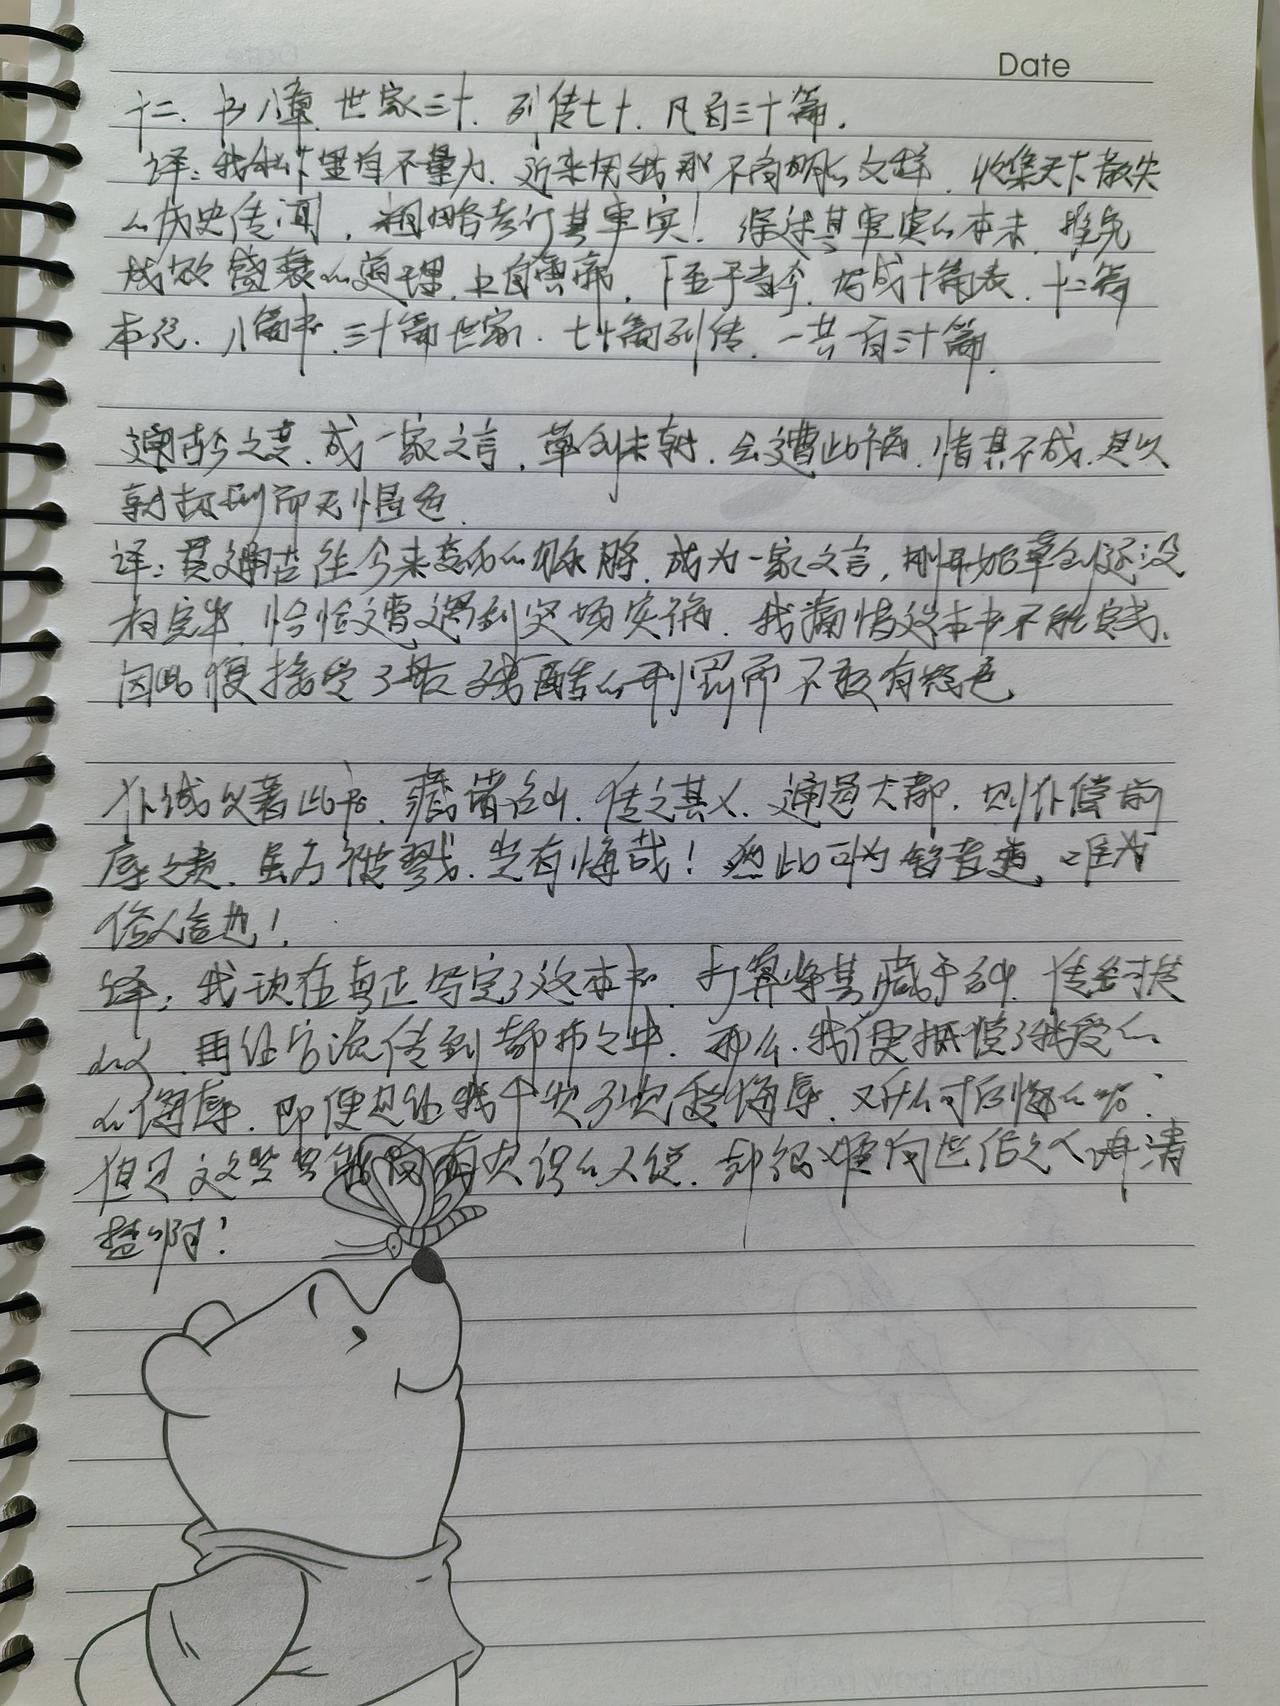 Date
十二、书八章、世家三十、列传七十、凡百三十篇。
译：我私下里自不量力、近来用我那不高明的文辞、收集天下散失
的历史传闻，粗略考订其事实！综述其事实的本末、推究
成败盛衰的道理、上自轩辕，下至于当今、写成十篇表、十二篇
本纪、八篇书、三十篇世家、七十篇列传、一共一百三十篇。
通古今之变、成一家之言，草创未就、会遭此祸、惜其不成、是以
就极刑而无愠色。
译：贯通古往今来变化的脉络、成为一家之言，刚开始草创还没
有完毕、恰恰遭遇到这场灾祸、我痛惜这本书不能完成、
因此便接受了最残酷的刑罚而不敢有怒色
仆诚以著此书、藏诸名山、传之其人、通邑大都、则仆偿前
辱之责、虽万被戮、岂有悔哉！然此可为智者道、难为
俗人言也！
译：我现在真正写完了这本书、打算将其藏于名山、传给可传
的人、再让它流传到都市之中、那么、我便抵偿了我受的
的侮辱、即便是让我千次万次受侮辱、又有什么可后悔的呢！
但是、这些只能向有见识的人说、却很难向世俗之人讲清
楚啊！